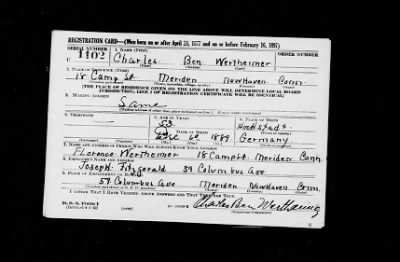 REGISTRATION CARD—(Men born on or after April 28, 1877 and on or before February 16, 1897)
SERIAL NUMBER 1. NAME (Print) ORDER NUMBER
U 1102 Charles Ben Wertheimer
(First) (Middle) (Last)
2. PLACE OF RESIDENCE (Print)
18 Camp St Meriden New Haven Conn.
[THE PLACE OF RESIDENCE GIVEN ON THE LINE ABOVE WILL DETERMINE LOCAL BOARD
JURISDICTION; LINE 2 OF REGISTRATION CERTIFICATE WILL BE IDENTICAL]
3. MAILING ADDRESS
Same
4. TELEPHONE 5. AGE IN YEARS 6. PLACE OF BIRTH
53
DATE OF BIRTH
Dec 6 1889 Germany
7. NAME AND ADDRESS OF PERSON WHO WILL ALWAYS KNOW YOUR ADDRESS
Florence Wertheimer 18 Camp St. Meriden Conn
8. EMPLOYER'S NAME AND ADDRESS
Joseph Fitzgerald 59 Columbus Ave
9. PLACE OF EMPLOYMENT OR BUSINESS
59 Columbus Ave Meriden New Haven Conn.
I AFFIRM THAT I HAVE VERIFIED ABOVE ANSWERS AND THAT THEY ARE TRUE.
D. S. S. Form 1 Charles Ben Wertheimer